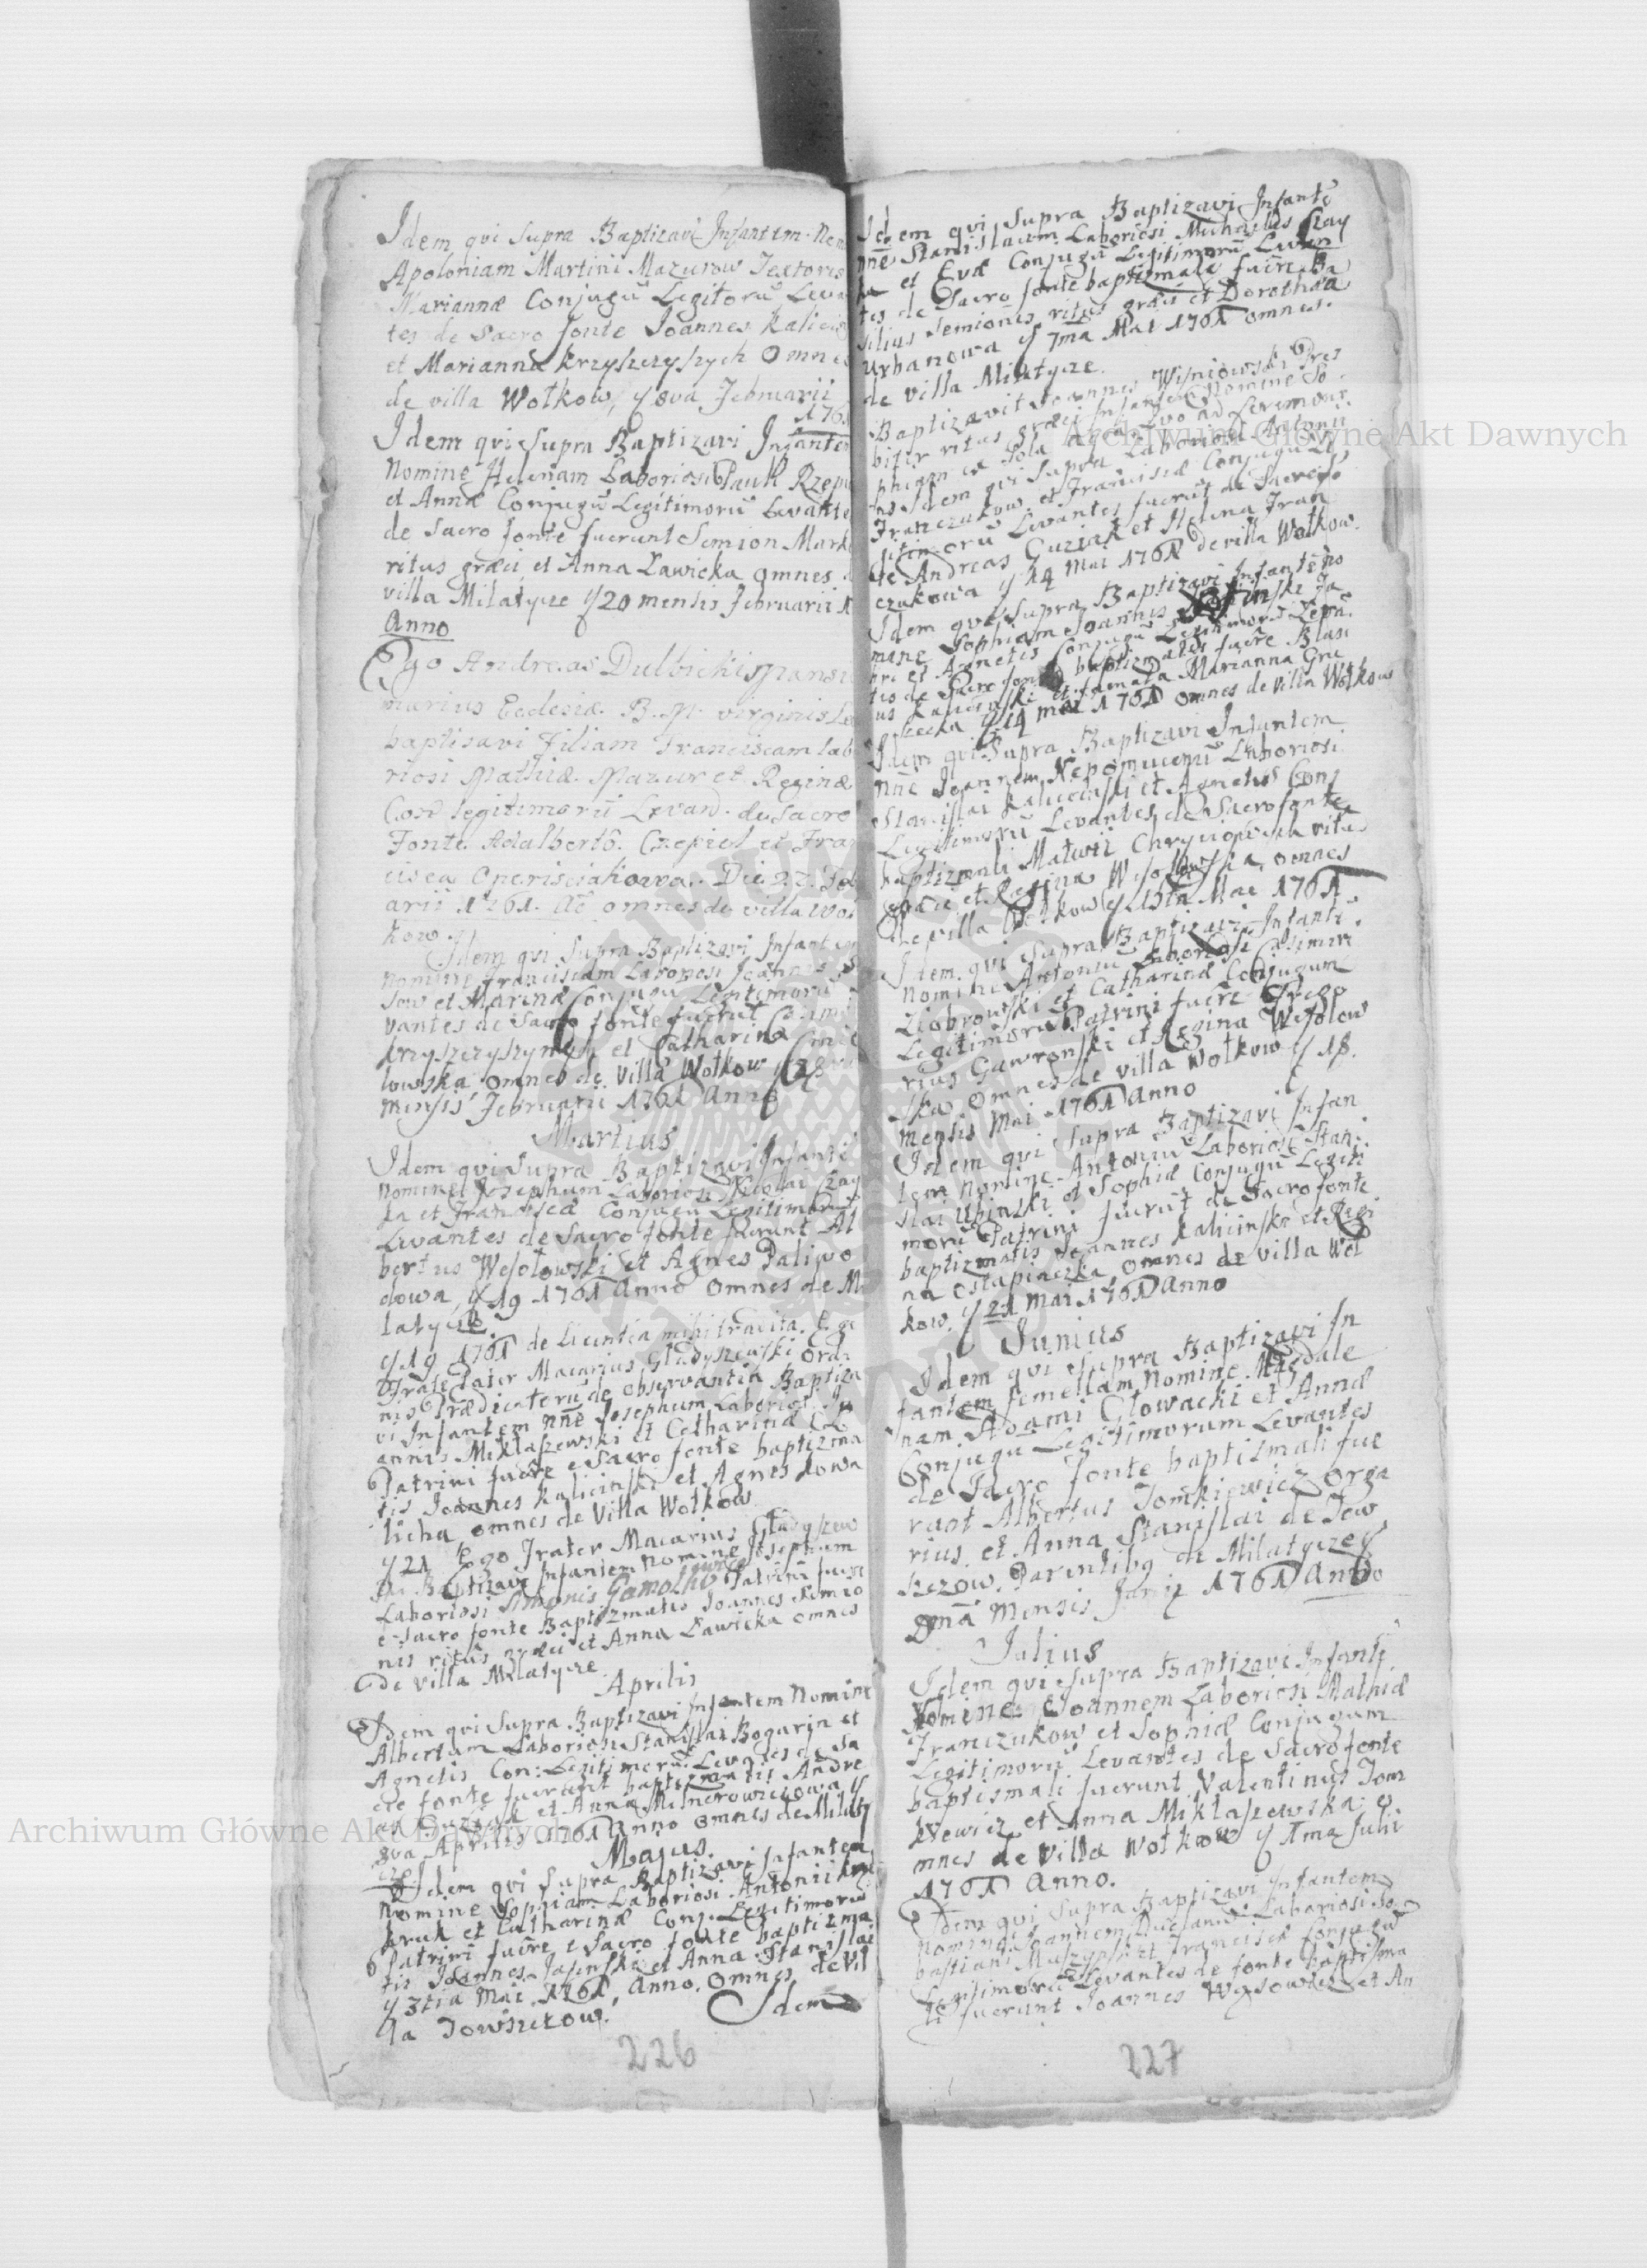 Idem qvi supra Baptizavi Infantem
Apoloniam Martini Mazurow Textoris
Mariannæ Conjugū Legitorū Leva
tes de Sacro fonte Joannes Kalicin
et Marianna Krzyszczyszych Omnes
de villa Wołkow, y 8va Februarii
176
Idem qvi Supra Baptizavi Infantem
Nomine Helenam Laboriosi Pauli Rzep
et Annæ Conjugū Legitimorū Levante
de Sacro fonte fuerunt Semion Mark
ritus græci et Anna Ławicka omnes
villa Milatycze y 20 mensis Februarii 1
Anno
Ego Andreas Dulbicki Mansi
narius Ecclesiæ B. M. virginis Le
baptisavi Filiam Franciscam lab
riosi Mathiæ Mazur et Reginæ
Con legitimorū Levand. de Sacro
Fonte Adalberto Czepiel et Fran
cisca Die 27 Feb
arii 1761. Ac omnes de villa Woł
kow.
Idem qvi Supra Baptizavi Infantem
nomine Franciscam Laboriosi Joannis
sow et Marinæ Conjugū Legitimorū
vantes de Sacro fonte fuerūt
Krzyszczyszyn et Catharina Cmie
lowska omnes de Villa Wołkow y 28
mensis Februarii 1761 Anno
Martius
Idem qvi Supra Baptizavi Infantē
Nomine Josephum Laboriosi Nicolai Czay
ka et Franciscæ Conjugū Legitimorū
Levantes de Sacro fonte fuerunt Al
bertus Wesołowski et Agnes Paliwo
dowa, y 19 1761 Anno Omnes de Mi
latycze
y 19 1761 de Licentia mihi tradita. Ego
Frater Pater Macarius Gładyszewski ordi
nis Prædicatorū de observantia Baptiza
vi Infantem nñe Josephum Laborios. Jo
annis Miklaszewski et Catharinæ C L
Patrini fuēre e Sacro fonte baptizma
tis Joannes Kalicinski et Agnes Kowa
licha omnes de Villa Wołkow.
y 21 Ego Frater Macarius Gładyszew
ski Baptizavi Infantem nomine Josephum
Laboriosi Antonis Patrini fuere
e Sacro fonte Baptizmatis Joannes Semio
nis ritus græci et Anna Ławicka omnes
de villa Milatycze
Aprilis
Idem qvi Supra Baptizavi Infantem Nomine
Albertum Laboriosi Stanislai Bogarin et
Agnetis Con: Legitimorū Levātes de Sa
cro fonte fuerunt baptizmatis Andre
as Guziak et Anna Milnerowiczowa y
8va Aprilis 1761 Anno omnes de Milaty
cze
Majus.
Idem qvi Supra Baptizavi Infantem
Nomine Sophiam Laboriosi Antonii
et Catharinæ Conj. Legitimorū
Patrini fuēre e Sacro fonte baptizma
tis Joannes Jasinski et Anna Stanislai
y 3tia Mai 1761 Anno. Omnes de Vil
la Towszczow.
Idem
226
Idem qvi Supra Baptizavi Infantē
nñe Stanislaum Laboriosi Michaelis Czay
ka et Evæ Conjugū Legitimorū Levan
tes de Sacro fonte baptizmali fuēre Ba
silius Semionis ritus græci et Dorothæa
Urbanowa y 7ma Mai 1761 omnes.
de villa Milatycze.
Baptizavit Joannes Wiśniowski Pres
biter ritus græci Infantem Nomine So
phiam ex sola aqua
Idem qvi Supra Laboriosi Antonii
Franczukow et Franciscæ Conjugū Le
gitimorū Levantes fuerūt de Sacro fo
te Andreas Guziak et Helena Fran
czukowa y 14 Mai 1761 de villa Wołkow.
Idem qvi Supra Baptizavi Infantē no
mine Sophiam Joannis Fa
bri et Agnetis Conjugū Legitimorū Leva
tes de Sacro fonte baptizmatis fuēre Blasi
us Kalicinski et famata Marianna Gru
szecka y 14 Mai 1761 omnes de villa Wołkow
Idem qvi Supra Baptizavi Infantem
nñe Joannem Nepomucenū Laboriosi
Stanislai Kalicinski et Agnetis Conj
Legitimorū Levantes de Sacro fonte
baptizmali Matwii ritus
græci et Regina Wesołowska, omnes
de villa Wołkow y 15ta Mai 1761
Idem qvi Supra Baptizavi Infantē
Nomine Antoniū Laboriosi Casimiri
Ziobrowski et Catharinæ Conjugum
Legitimorū Patrini fuēre Grego
rius Gawronski et Regina Wesołow
ska Omnes de villa Wołkow y 18.
Mensis Mai 1761 Anno
Idem qvi Supra Baptizavi Infan
tem Nomine Antoniū Laboriosi Stani
slai et Sophiæ Conjugū Legiti
morū Patrini fuerūt de Sacro fonte
baptizmatis Joannes Kalicinski et Regi
na Ostapiaczka omnes de villa Woł
kow. y 21 Mai 1761 Anno
Junius
Idem qvi Supra Baptizavi In
fantem femellam Nomine Magdale
nam Adami Głowacki et Annæ
Conjugū Legitimorum Levantes
de Sacro fonte baptismali fue
runt Albertus Tomkiewicz Orga
rius et Anna Stanislai de Tow
szczow. Parentibq de Milatycze y
9nā Mensis Junij 1761 Anno
Julius
Idem qvi Supra Baptizavi Infantē
Nomine Joannem Laboriosi Mathiæ
Franczukow et Sophiæ Conjugum
Legitimorū Levantes de Sacro fonte
baptismali fuerunt Valentinus Tom
kiewicz et Anna Miklaszewska o
mnes de Villa Wołkow y 1ma Julii
1761 Anno.
Idem qvi Supra Baptizavi Infantem
Nomine Joannem Laboriosi Se
bastiani et Franciscæ Conjugū
Legitimorū Levantes de fonte baptisma
li fuerunt Joannes et An
227
Archiwum Główne Akt Dawnych
Archiwum Główne Akt Dawnych